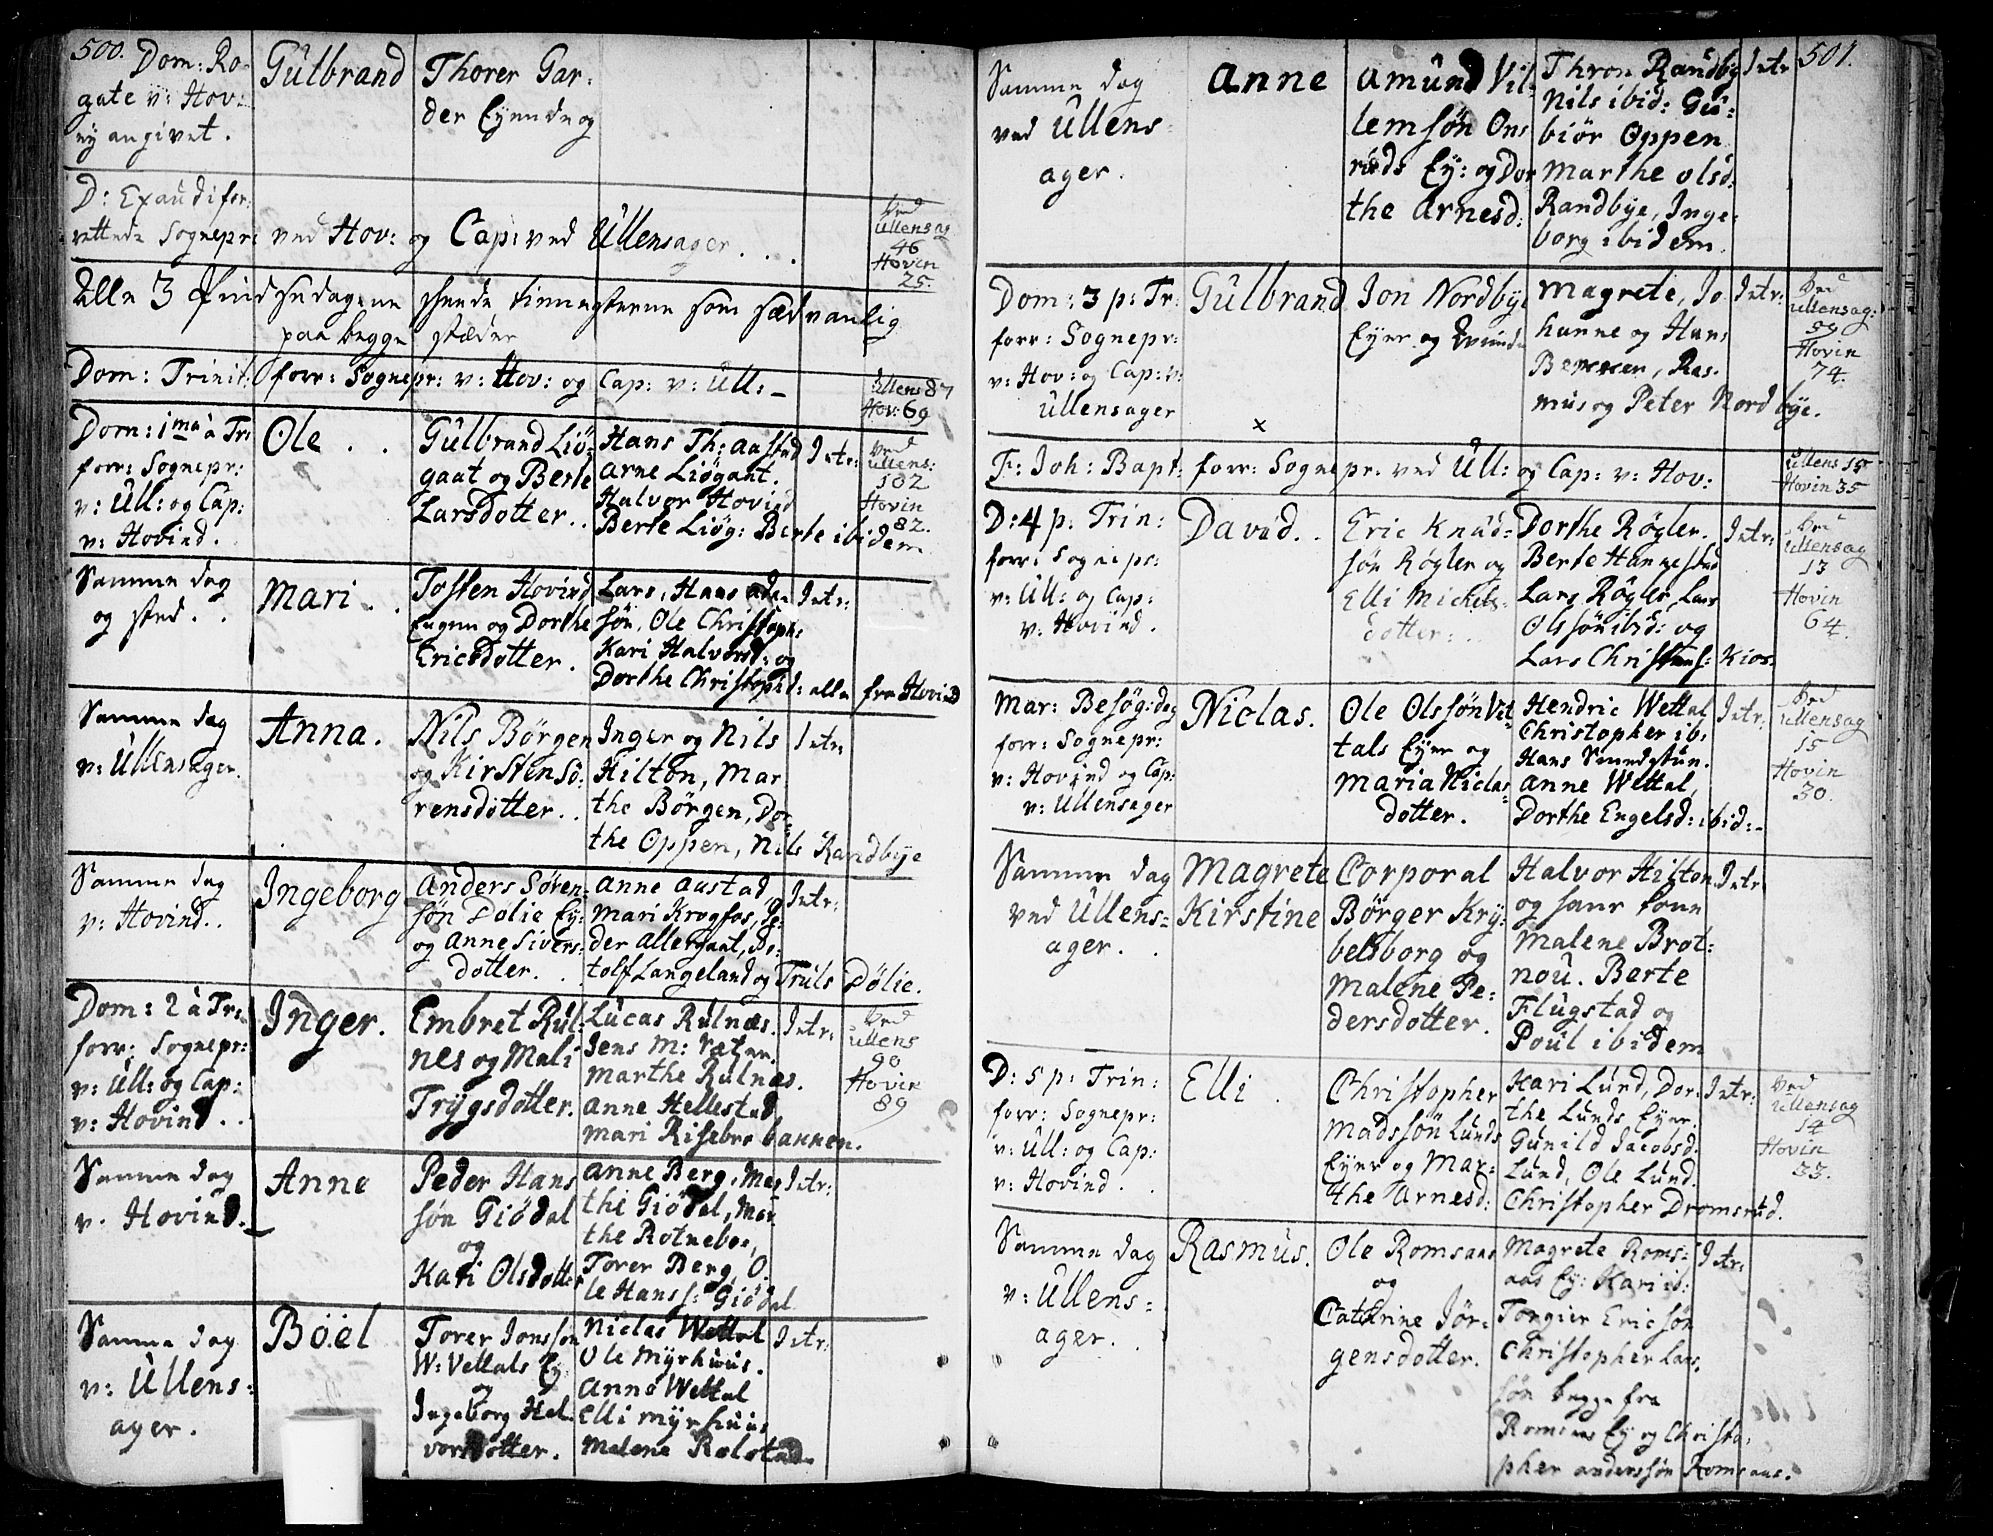 500. Dom: Ro-
gate v: Hov:
ey angivet.
Gulbrand
Thorer Gar-
der Eyende og
D: Exaudi for:
rettede Sognepr: ved Hov: og Cap: ved Ullensager. . .
Ved
Ullensag
46
Hovin
25.
Alle 3 Pindsedagene skeede tienesterne som sædvanlig
paa begge stæder
Dom: Trinit: forr: Sognepr: v: Hov: og Cap: v: Ull: -
Ullens 87
Hov: 69
Dom: 1ma à Tr:
forr: Sognepr:
v: Ull: og Cap:
v: Hovind.
Ole . .
Gulbrand Liö-
gaat og Berte
Larsdotter. .
Hans Th: Aastad
Arne Liögaat.
Halvor Hovind
Berte Liög: Berte ibidem
Intr:
Ved
Ullens:
102
Hovin
82.
Samme dag
og sted. .
Mari . .
Tosten Hovind
og Dorthe
Ericsdotter.
Lars, Hans
sön, Ole Christoph:
Kari Halvorsd: og
Dorthe Christophd: alle fra Hovind
Intr:
Samme dag
v: Ullensager.
Anna.
Nils Börgen
og Kirsten Sö-
rensdotter. .
Inger og Nils
Hilton, Mar
the Börgen, Dor-
the Oppen, Nils Randbye
Intr:
Samme dag
v: Hovind. .
Ingeborg
Anders Sören-
sön Dölie Ey:
og Anne Sivers-
dotter. .
Anne Austad,
Mari Krogfos, Pe-
der Allergaat, Bo-
tolf Langeland og Truls Dölie.
Intr:
Dom: 2 à Tr:
forr: Sognepr:
v: Ull: og Cap:
v: Hovind. .
Inger.
Embret Rul-
nes og Mali
Trygsdotter.
Lucas Rulnæs.
Jens M: Ræter.
Marthe Rulnæs.
Anne Hellestad
Mari Risebro bannen.
Intr:
Ved
Ullens
90
Hovin
89
Samme dag
v. Hovind.
Anne
Peder Hans
sön Giödal
og
Kari Olsdotter
Anne Berg, Mar
the Giödal, Mar
the Rotneboe,
Torer Berg, O-
le Hanss: Giödal
Intr:
Samme dag
v: Ullens-
ager.
Böel
Torer Jonssön
W: Vettals Ey
og
Ingeborg Hal-
vorsdotter.
Niclas Wettal
Ole Myrhuus.
Anne Wettal
Elli Myrhuus
Malene Rolstad
Intr:
501.
Samme dag
ved Ullens-
ager.
Anne
Amund Vil-
lemsön Ons
ruds Ey: og Dor
the Arnesd:
Thron Randby
Nils ibid: Gu-
biör Oppen
Marthe Olsd:
Randbye, Inge-
borg ibidem.
Intr
Dom: 3 p: Tr:
forr: Sognepr:
v: Hov: og Cap: v:
Ullensager
Gulbrand
Jon Nordbye
Eyer og
Magrete, Jo
hanne og Hans
Ras-
mus og Peter Nordbye.
Intr:
Ved
Ullensag:
59
Hovin
74.
F: Joh: Bapt: forr: Sognepr. ved Ull: og Cap: v: Hov:
Ullens 15
Hovin 35
D: 4 p: Trin:
forr: Sognepr:
v: Ull: og Cap:
v: Hovind.
David. .
Eric Knud-
sön Røgler og
Elli Mickels-
dotter.
Dorthe Røgler.
Berte Hannestad
Lars Røgler, Lars
Olssön ibid: og
Lars Christens: Kios.
Intr:
Ved
Ullensag
13
Hovin
64.
Mar: Besög: dag
forr: Sognepr:
v: Hovind og Cap:
v: Ullensager
Niclas.
Ole Olssön Vet-
tals Eyer og
Maria Niclas-
dotter.
Hendric Wettal
Christopher ib:
Hans Smedstun.
Anne Wettal,
Dorthe Engelsd: ibid: -
Intr:
Ved
Ullensag
15
Hovin
30.
Samme dag
ved Ullens-
ager. .
Magrete
Kirstine
Corporal
Börger Kry-
belsborg og
Malene Pe-
dersdotter.
Halvor Hilton
og hans kone
Malene Brot-
nou. Berte
Flugstad og
Poul ibidem
Intr:
D: 5 p: Trin:
forr: Sognepr:
v: Ull: og Cap:
v: Hovind. .
Elli .
Christopher
Madssön Lunds
Eyer og Mar-
the Arnesd:
Kari Lund, Dor-
the Lunds Eyer.
Gunild Jacobsd.
Lund, Ole Lund.
Christopher Dromsrud.
Intr:
Ved
Ullensag
14
Hovin
33.
Samme dag
v: Ullens-
ager.
Rasmus.
Ole Romsaas
og
Cathrine Jör-
gensdotter.
Magrete Roms-
aas Ey: Kari is:
Torgier Ericsön
Christopher Lars-
sön begge fra
Romsaas Ey og Christo-
pher Anderssön Romsaas.
Intr: